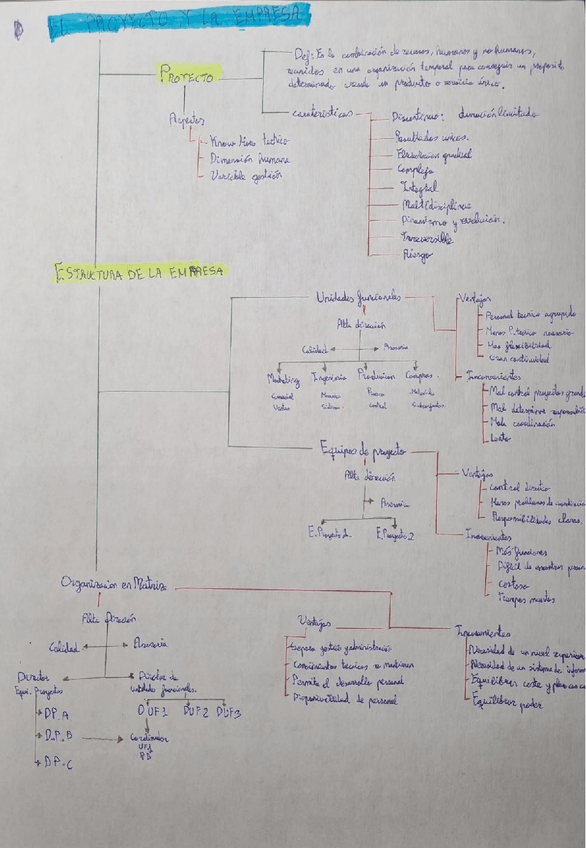 EL PROYECTO Y LA EMPRESA
PROYECTO
Def: Es la combinación de recursos, humanos y no humanos,
reunidos en una organización temporal para conseguir un proposito
determinado creando un producto o servicio único.
Aspectos
Know How tecnico
Dimensión humana
Variable gestión
características
Discontinuo: duración limitada
Resultados unicos.
Elaboración gradual
Complejo
Integral
Multidisciplinar
Dinamismo y evolución.
Irreversible
Riesgo
ESTRUCTURA DE LA EMPRESA
Unidades funcionales
Alta dirección
Calidad
Asesoria
Marketing
Ingenieria
Produccion
Compras.
Comercial
Ventas
control
Ventajas
Personal tecnico agrupado
Menos P. tecnico necesario
Mas flexibilidad
Gran continuidad
Inconvenientes
Mal control proyectos grande
Mal determina
Mala coordinación
Lento
Equipos de proyecto
Alta dirección
Asesoria
E. Proyecto 1
E. Proyecto 2
Ventajas
Control directo
Menos problemas de
Responsabilidades claras.
Inconvenientes
Más funciones
Dificil de encontrar
Costoso
Tiempos muertos
Organizacion en Matriz
Alta Dirección
Calidad
Asesoria
Director
Equi. Proyecto
DP. A
D.P. B
DP. C
Director de
unidades funcionales.
DUF1
DUF2
DUF3
Coordinador
UF1
PB
Ventajas
Separa gestión y administración
Conocimientos tecnicos
Permite el desarrollo personal
Disponibilidad de personal
Inconvenientes
Necesidad de un nivel superior
Necesidad de un sistema de inform
Equilibrar coste y plazo
Equilibrar poder